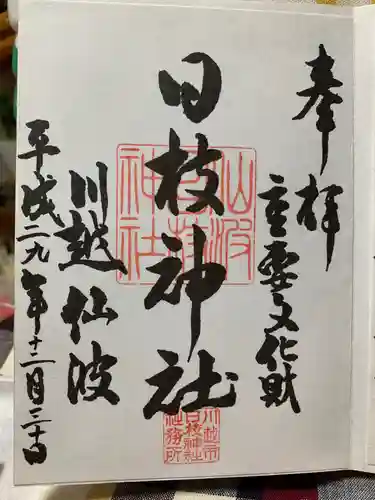 奉拝
重要文化財
日枝神社
川越仙波
平成二九年十二月三十日
川越市
日枝神社
社務所